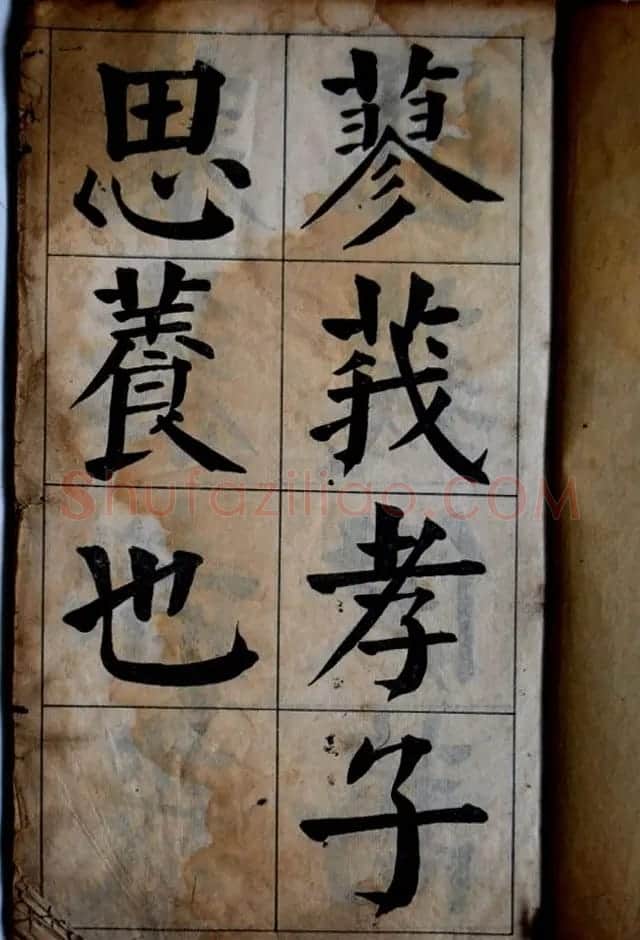 蓼莪孝子
思養也
Shufaziliao.COM